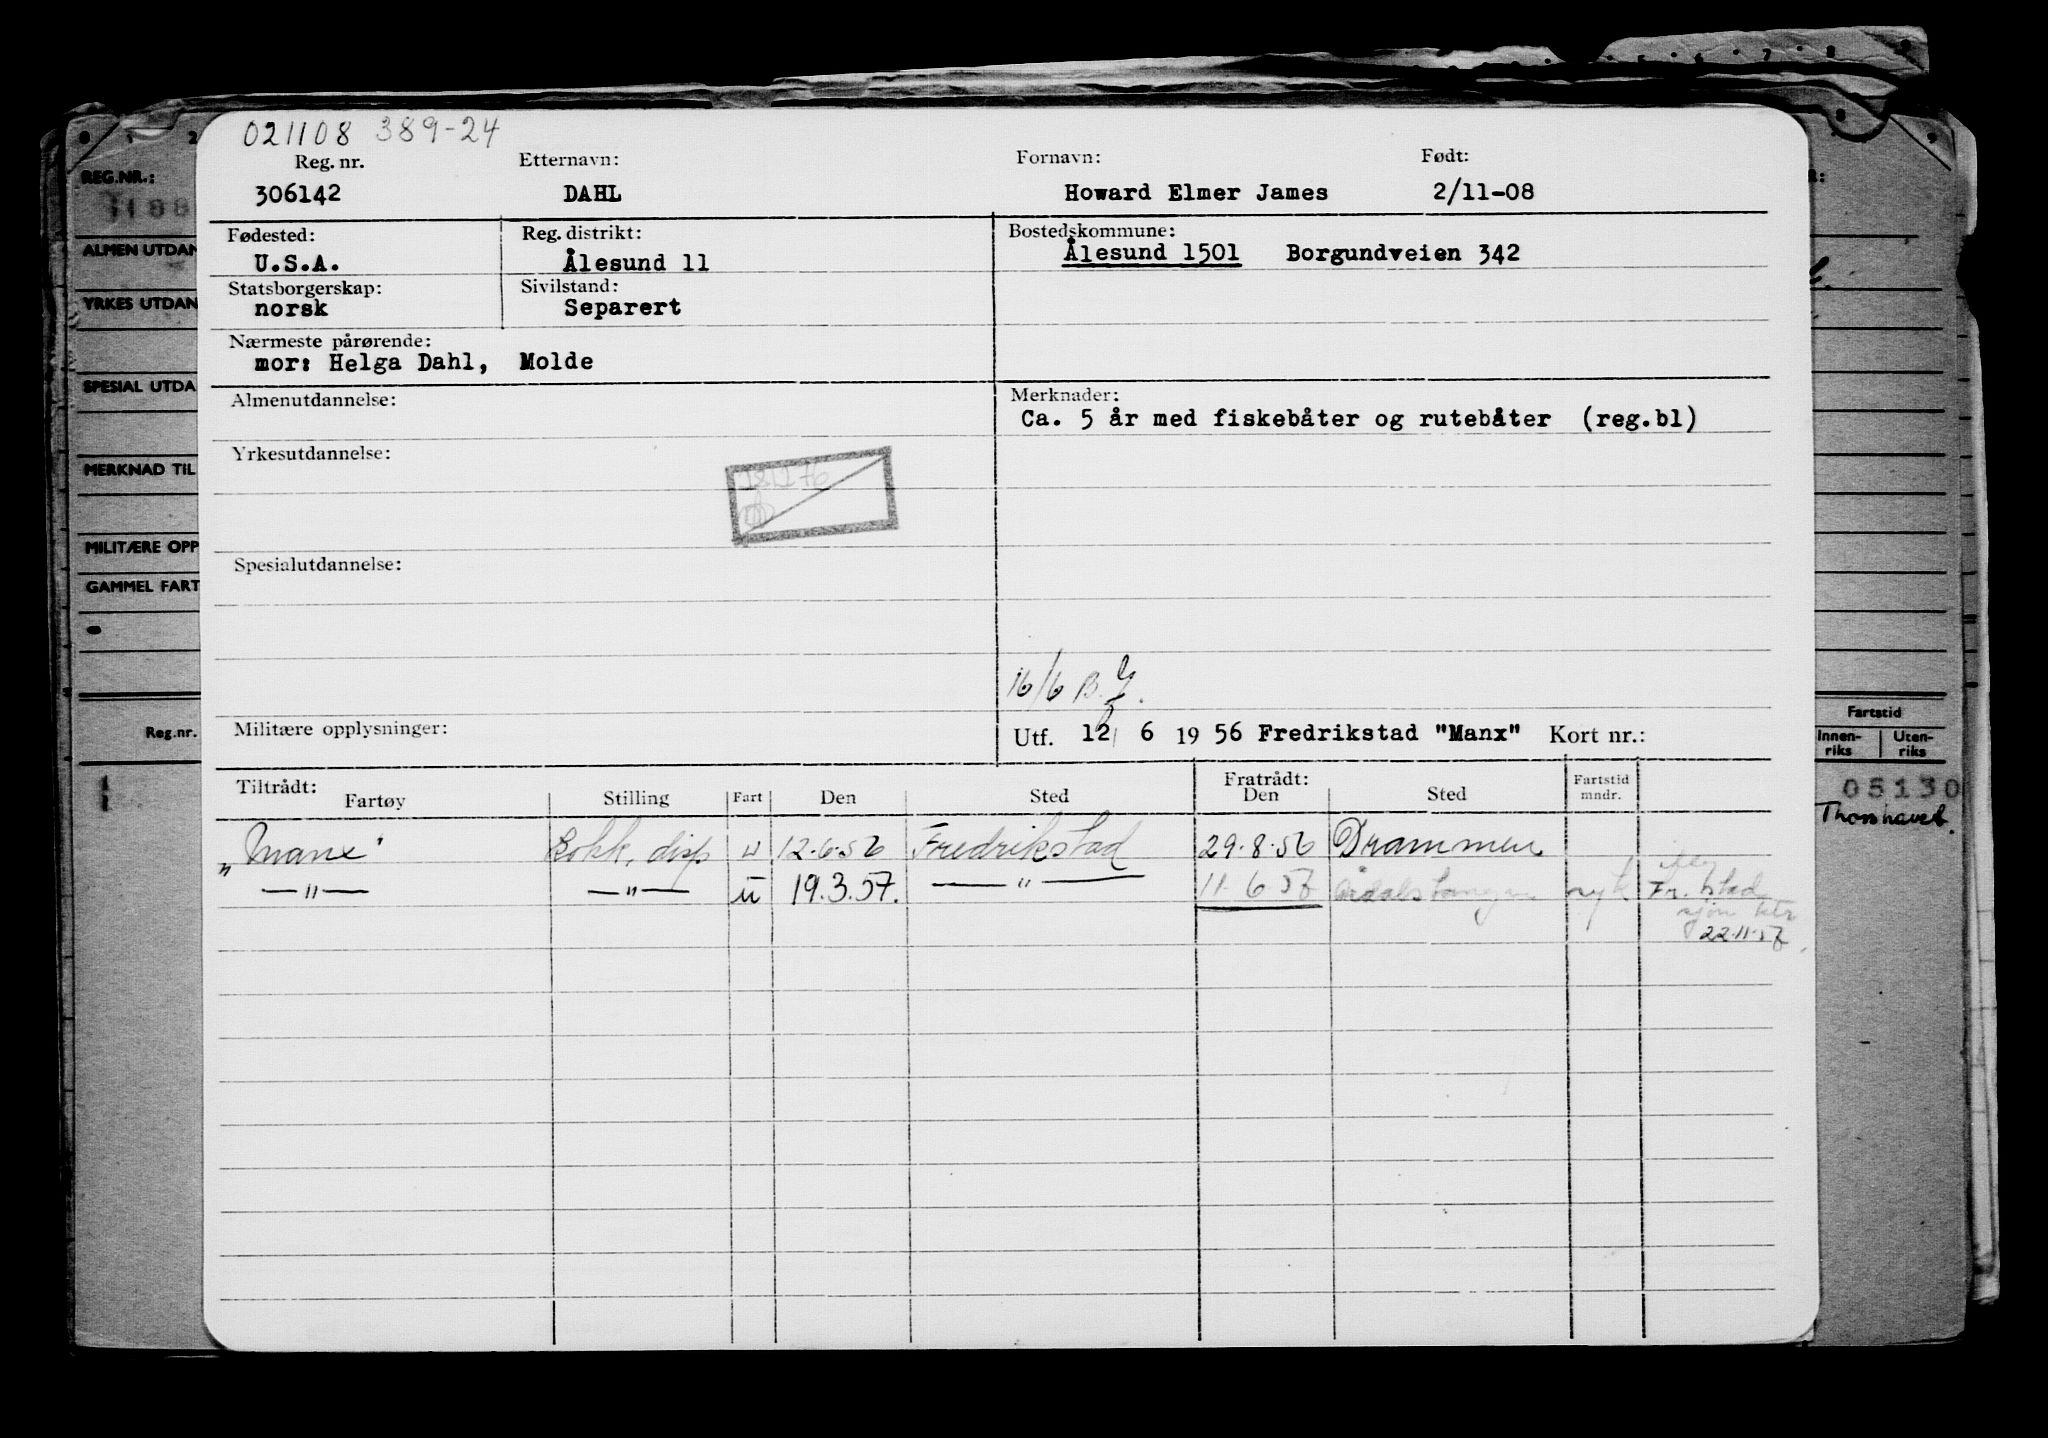 021108 389-24
Reg. nr. Etternavn: Fornavn: Født:
306142 DAHL Howard Elmer James 2/11-08
Fødested: Reg. distrikt: Bostedskommune:
U.S.A. Ålesund 11 Ålesund 1501 Borgundveien 342
Statsborgerskap: Sivilstand:
norsk Separert
Nærmeste pårørende:
mor: Helga Dahl, Molde
Almenutdannelse: Merknader:
Ca. 5 år med fiskebåter og rutebåter (reg.bl)
Yrkesutdannelse:
Spesialutdannelse:
16/6 B.
Militære opplysninger:
Utf. 12/ 6 19 56 Fredrikstad "Manx" Kort nr.:
Tiltrådt: Fratrådt: Fartstid
Fartøy Stilling Fart Den Sted Den Sted mndr.
"Manx" Kokk, disp u 12.6.56 Fredrikstad 29.8.56 Drammen
—"— —"— u 19.3.57. —"— 11.6.57 Årdalstangen syk Fr.stad
22.11.57
REG.NR.:
ALMEN UTDAN
YRKES UTDAN
SPESIAL UTDA
MERKNAD TIL
MILITÆRE OPP
GAMMEL FART
Reg.nr.
Fartstid
Innen-riks Uten-riks
05130
Thorshavet.